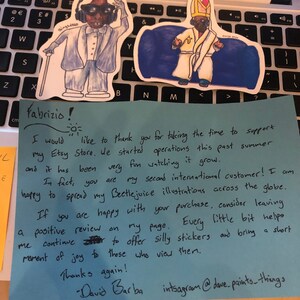 Fabrizio!
I would like to thank you for taking the time to support
my Etsy Store. We started operations this past summer
and it has been very fun watching it grow.
In fact, you are my second international customer! I am
happy to spread my Beetlejuice illustrations across the globe.
If you are happy with your purchase, consider leaving
a positive review on my page. Every little bit helps
me continue to offer silly stickers and bring a short
moment of joy to those who view them.
Thanks again!
-David Barba instagram @dave_paints_things